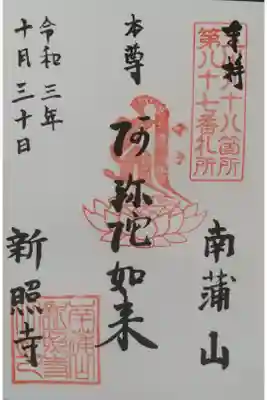 十八箇所
第八十七番札所
南蒲山
本尊
阿弥陀如来
令和三年
十月三十日
新照寺